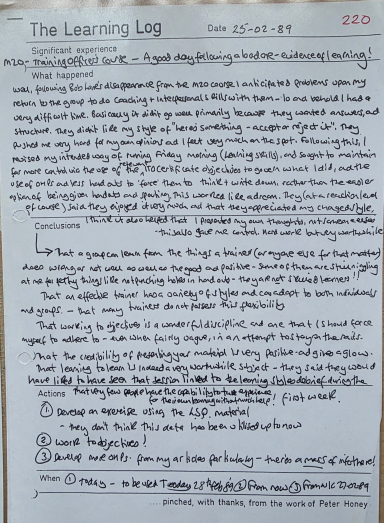 220
The Learning Log Date 25-02-89
Significant experience
M20 - Training Officers Course - A good day following a bad one - evidence of learning!
What happened
Well, following Bob disappearance from the M20 course I anticipated problems upon my
return to the group to do Coaching + Interpersonal Skills with them - lo and behold I had a
very difficult time. Basically it didn't go well primarily because they wanted answers, and
structure. They didn't like my style of "here's something - accept or reject it". They
pushed me very hard for my own opinions and I felt very much on the spot. Following this, I
revised my intended way of running Friday morning (Learning Skills), and sought to maintain
far more control via the use of the certificate objectives to govern what I did, and the
use of and less handouts to 'force them to think + write down, rather than the earlier
option of being given handouts and speaking, this worked like a dream. They (at a reaction level
of course) said they enjoyed it very much and that they appreciated my changed style,
I think it also helped that I presented my own thoughts,
- this also gave me control. Hard work but very worthwhile
Conclusions
That a group can learn from the things a trainer (or anyone else for that matter)
does wrong or not well as well as the good and positive - some of them are still niggling
at me for petty things like not punching holes in hand outs - they are not skilled learners!!
That an effective trainer has a variety of styles and can adapt to both individuals
and groups. - that many trainers do not possess this flexibility
That working to objectives is a wonderful discipline and one that I should force
myself to adhere to - even when fairly vague, in an attempt to stay on the rails.
That the credibility of presenting your material is very positive and gives a glow.
That learning to learn is indeed a very worthwhile subject - they said they would
have liked to have seen that session linked to the learning styles debrief during the
first week.
That very few people have the capability to
Actions
① Develop an exercise using the LSQ material
- they don't think this data has been utilised up to now
② Work to objectives!
③ Develop more from my articles particularly - there is a mass of info there!
When ① Today - to be used Tuesday 28th Feb ② From now ③ From
.... pinched, with thanks, from the work of Peter Honey